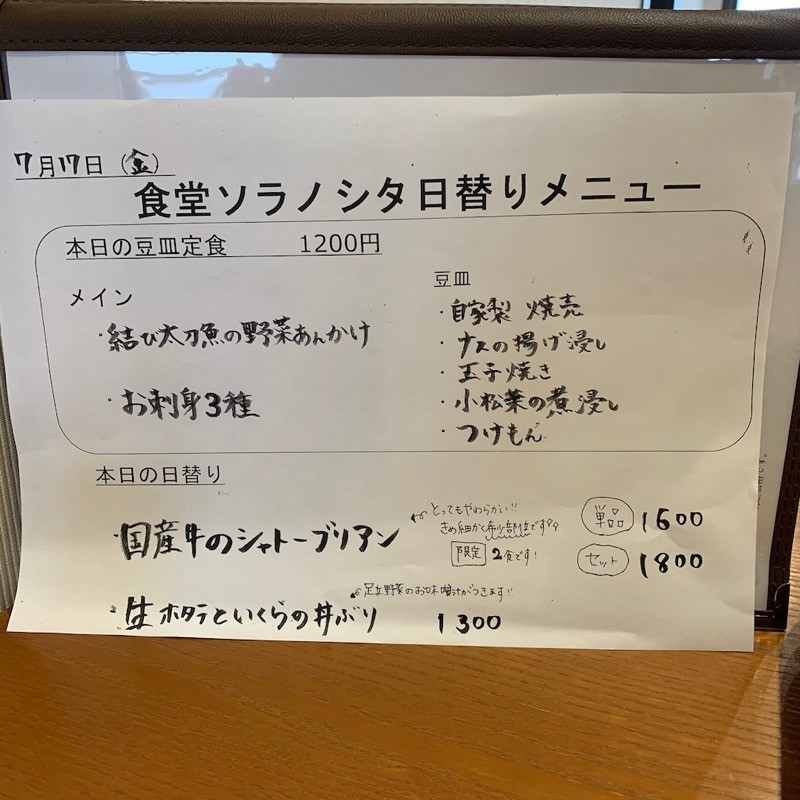 7月17日(金)
食堂ソラノシタ日替りメニュー
本日の豆皿定食 1200円
メイン
・結び太刀魚の野菜あんかけ
・お刺身3種
豆皿
・自家製 焼売
・ナスの揚げ浸し
・玉子焼き
・小松菜の煮浸し
・つけもん
本日の日替り
・国産牛のシャトーブリアン
とってもやわらかい!!
きめ細かく希少部位です
限定 2食です!
単品 1600
セット 1800
・生ホタテといくらの丼ぶり 1300
足立野菜のお味噌汁がつきます!!